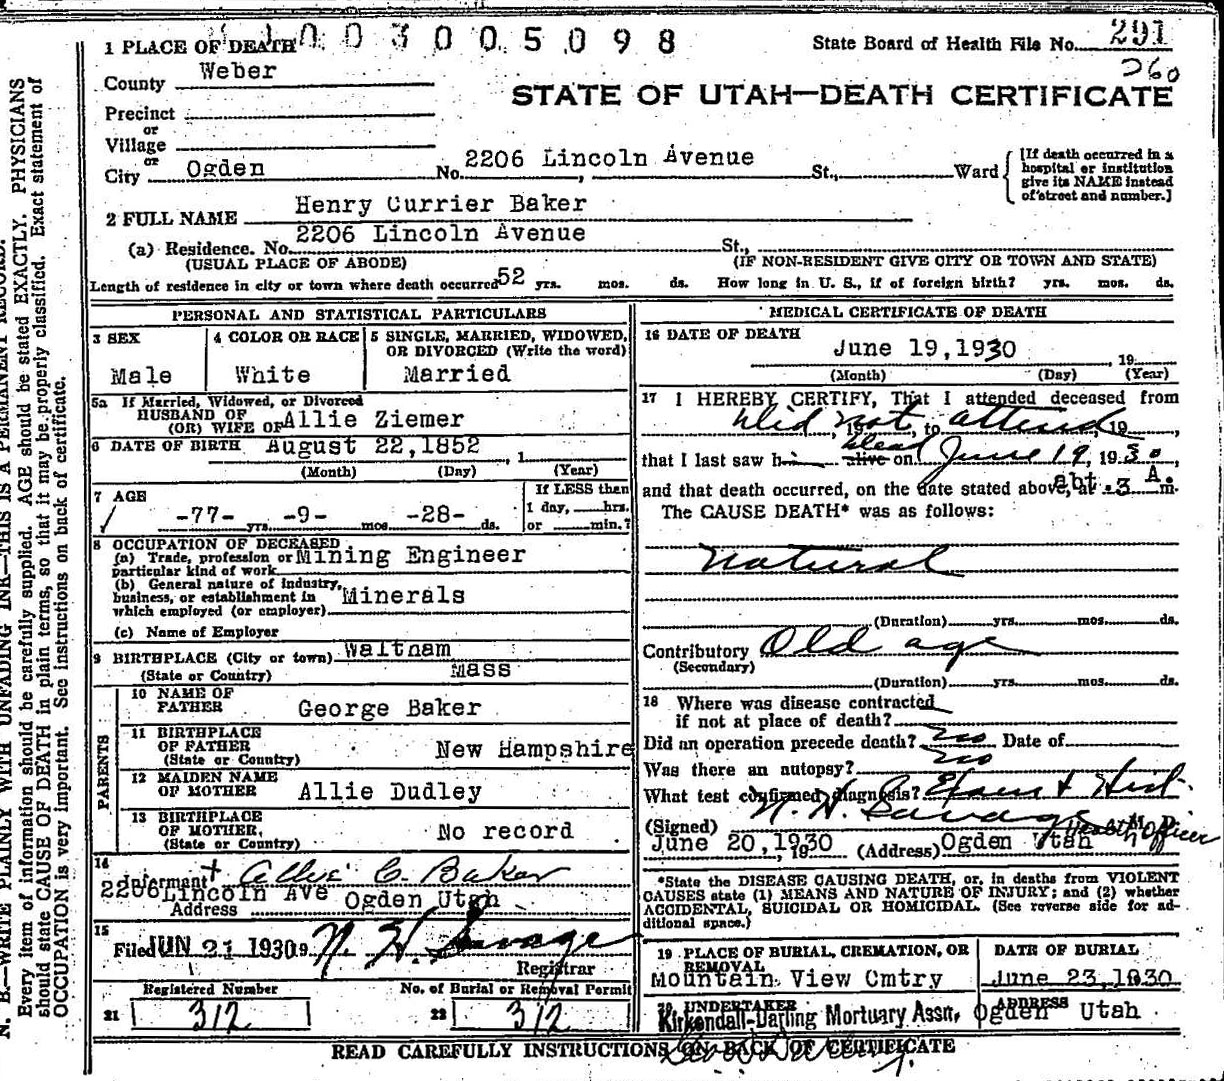 1 PLACE OF DEATH 1 0 0 3 0 0 5 0 9 8 State Board of Health File No. 291
County Weber 260
STATE OF UTAH—DEATH CERTIFICATE
Precinct
or
Village
or
City Ogden No. 2206 Lincoln Avenue St., Ward [If death occurred in a hospital or institution give its NAME instead of street and number.]
2 FULL NAME Henry Currier Baker
(a) Residence. No. 2206 Lincoln Avenue St.,
(USUAL PLACE OF ABODE) (IF NON-RESIDENT GIVE CITY OR TOWN AND STATE)
Length of residence in city or town where death occurred 52 yrs. mos. ds. How long in U. S., if of foreign birth? yrs. mos. ds.
PERSONAL AND STATISTICAL PARTICULARS
3 SEX 4 COLOR OR RACE 5 SINGLE, MARRIED, WIDOWED,
OR DIVORCED (Write the word)
Male White Married
5a If Married, Widowed, or Divorced
HUSBAND OF
(OR) WIFE OF Allie Ziemer
6 DATE OF BIRTH August 22, 1852 , 1
(Month) (Day) (Year)
7 AGE If LESS than
1 day, hrs.
-77- yrs. -9- mos -28- ds. or min.?
8 OCCUPATION OF DECEASED
(a) Trade, profession or Mining Engineer
particular kind of work
(b) General nature of Industry,
business, or establishment in Minerals
which employed (or employer)
(c) Name of Employer
9 BIRTHPLACE (City or town) Waltham
(State or Country) Mass
PARENTS
10 NAME OF
FATHER George Baker
11 BIRTHPLACE
OF FATHER New Hampshire
(State or Country)
12 MAIDEN NAME
OF MOTHER Allie Dudley
13 BIRTHPLACE
OF MOTHER, No record
(State or Country)
14
Informant + Allie C. Baker
2206 Lincoln Ave Ogden Utah
Address
15
Filed JUN 21 1930 19 N. H. Savage
Registrar
Registered Number No. of Burial or Removal Permit
21 312 22 312
MEDICAL CERTIFICATE OF DEATH
16 DATE OF DEATH
June 19, 1930 , 19
(Month) (Day) (Year)
17 I HEREBY CERTIFY, That I attended deceased from
Did not, 19 , to attend, 19
dead
that I last saw h alive on June 19, 1930,
and that death occurred, on the date stated above, at abt. 3 A. m.
The CAUSE DEATH* was as follows:
Natural
(Duration) yrs. mos. ds.
Contributory Old age
(Secondary)
(Duration) yrs. mos. ds.
18 Where was disease contracted
if not at place of death?
Did an operation precede death? no Date of
Was there an autopsy? no
What test confirmed diagnosis? Exam & Hist.
(Signed) N. H. Savage M. D. Health Officer
June 20, 1930 (Address) Ogden Utah
*State the DISEASE CAUSING DEATH, or, in deaths from VIOLENT
CAUSES state (1) MEANS AND NATURE OF INJURY; and (2) whether
ACCIDENTAL, SUICIDAL OR HOMICIDAL. (See reverse side for additional space.)
19 PLACE OF BURIAL, CREMATION, OR REMOVAL DATE OF BURIAL
Mountain View Cmtry June 23, 1930
20 UNDERTAKER ADDRESS
Kirkendall-Darling Mortuary Assn. Ogden Utah
READ CAREFULLY INSTRUCTIONS ON BACK OF CERTIFICATE
N. B.—WRITE PLAINLY WITH UNFADING INK—THIS IS A PERMANENT RECORD.
Every item of information should be carefully supplied. AGE should be stated EXACTLY. PHYSICIANS
should state CAUSE OF DEATH in plain terms, so that it may be properly classified. Exact statement of
OCCUPATION is very important. See instructions on back of certificate.